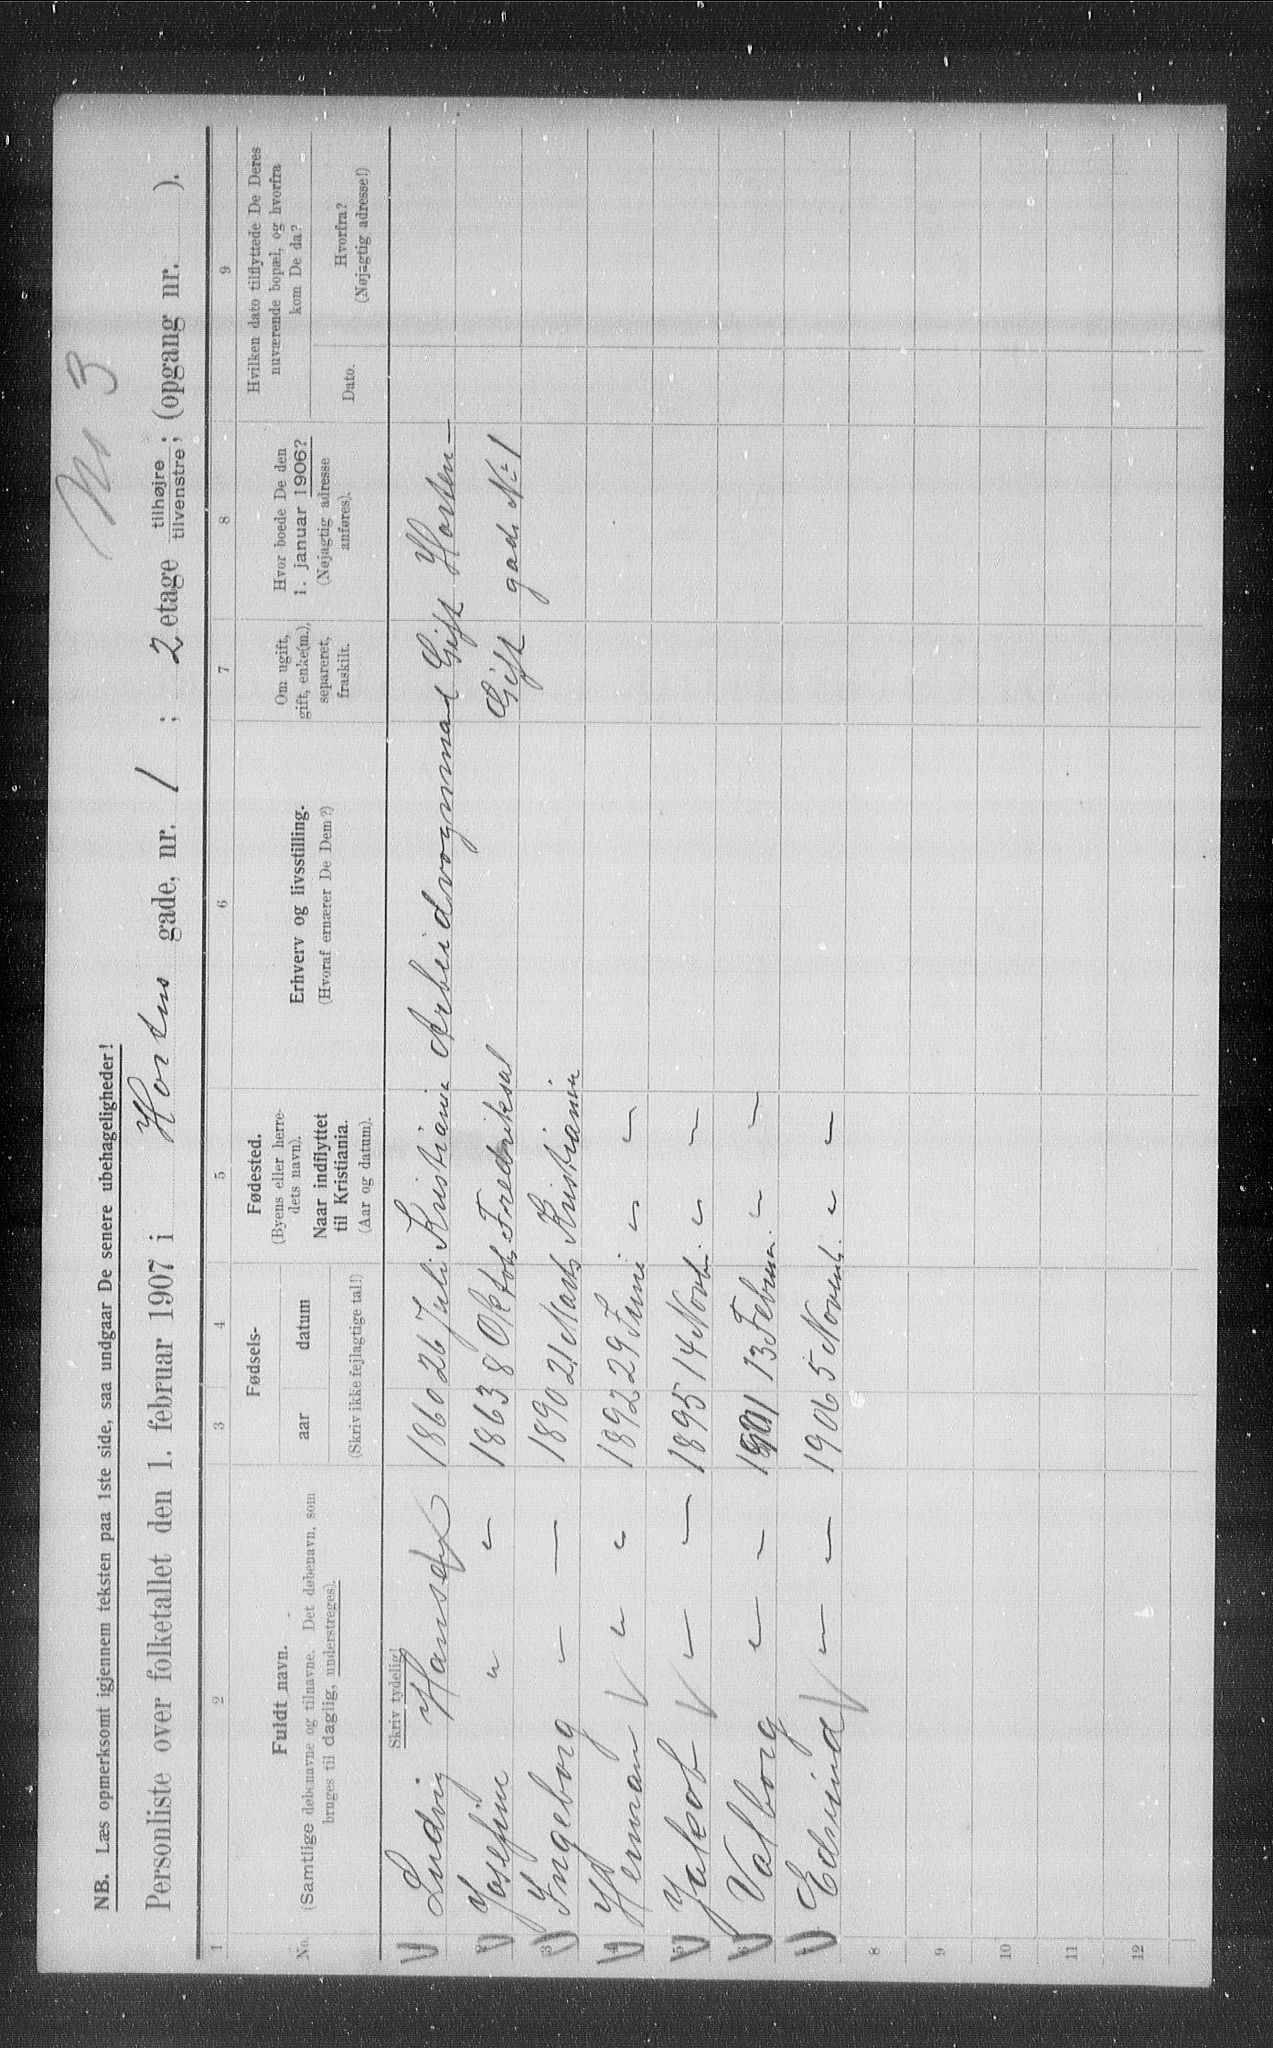 No 3
NB. Læs opmerksomt igjennem teksten paa 1ste side, saa undgaar De senere ubehageligheder!
Personliste over folketallet den 1. februar 1907 i Hortens gade, nr. 1 ; 2 etage tilhøjre ; tilvenstre ; (opgang nr. ).
1 2 3 4 5 6 7 8 9
No.
Fuldt navn.
(Samtlige døbenavne og tilnavne. Det døbenavn, som
bruges til daglig, understreges).
Fødsels-
aar datum
(Skriv ikke fejlagtige tal!)
Fødested.
(Byens eller herre-
dets navn).
Naar indflyttet
til Kristiania.
(Aar og datum).
Erhverv og livsstilling.
(Hvoraf ernærer De Dem?)
Om ugift,
gift, enke(m.),
separeret,
fraskilt.
Hvor boede De den
1. januar 1906?
(Nøjagtig adresse
anføres).
Hvilken dato tilflyttede De Deres
nuværende bopæl, og hvorfra
kom De da?
Dato.
Hvorfra?
(Nøjagtig adresse!)
Skriv tydelig!
1 Ludvig Hansen 1860 26 Juli Kristiania Arbeidvognmand Gift Horten—
2 Josefine " " 1863 8 Oktob. Fredriksal Gift gade No 1
3 Ingeborg — — 1890 21 Marts Kristiania
4 Herman " " 1892 29 Juni " —
5 Jakob — — 1895 14 Novb. " —
6 Valborg — — 1901 13 Februa. — —
7 Edvind — — 1906 5 Novemb. " —
8
9
10
11
12